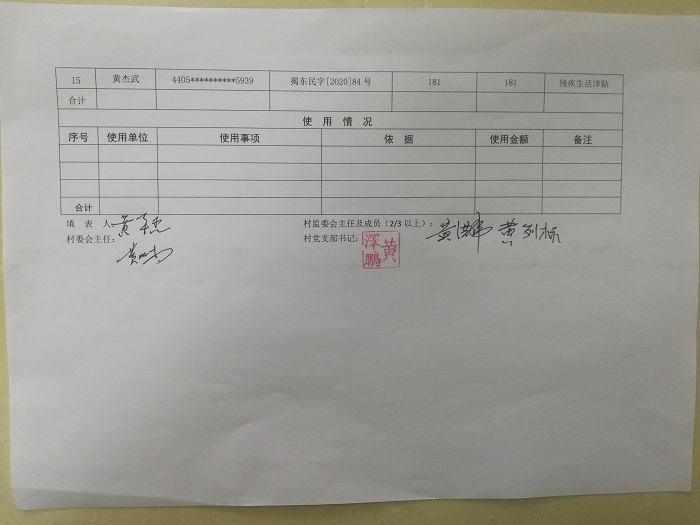 15 黄杰武 4405**********5939 揭东民字[2020]84号 181 181 残疾生活津贴
合计
使 用 情 况
序号 使用单位 使用事项 依 据 使用金额 备注
合计
填 表 人: 村监委会主任及成员(2/3以上):
村委会主任: 村党支部书记: 黄泽鵬